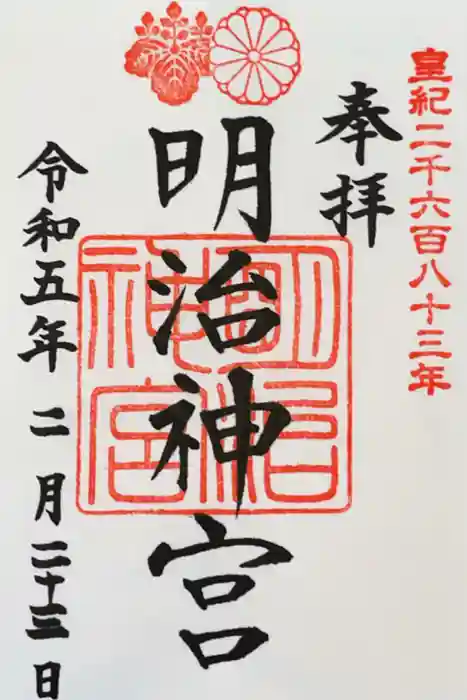 皇紀二千六百八十三年
奉拝
明治神宮
明治神宮
令和五年二月二十三日